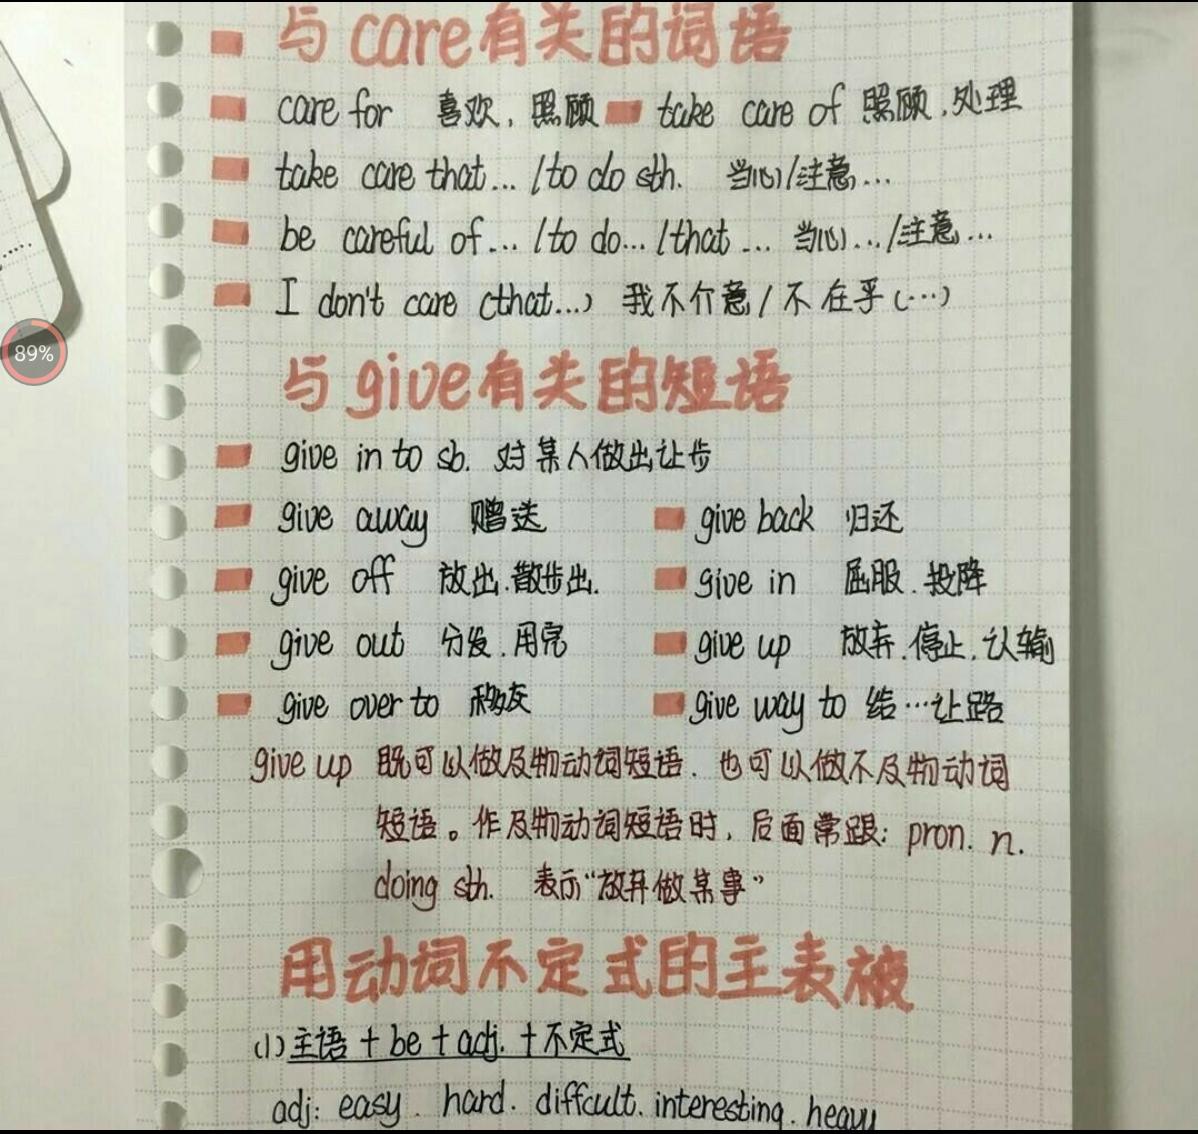 与care有关的词语
care for 喜欢，照顾 take care of 照顾，处理
take care that... /to do sth. 当心/注意...
be careful of... /to do... /that ... 当心.../注意...
I don't care (that...) 我不介意/不在乎(...)
89%
与give有关的短语
give in to sb. 对某人做出让步
give away 赠送 give back 归还
give off 放出.散步出. give in 屈服.投降
give out 分发.用完 give up 放弃.停止.认输
give over to 移交 give way to 给...让路
give up 既可以做及物动词短语，也可以做不及物动词
短语。作及物动词短语时，后面常跟: pron. n.
doing sth. 表示“放弃做某事”
用动词不定式的主表被
(1)主语+be+adj.+不定式
adj: easy. hard. diffcult. interesting. heavy